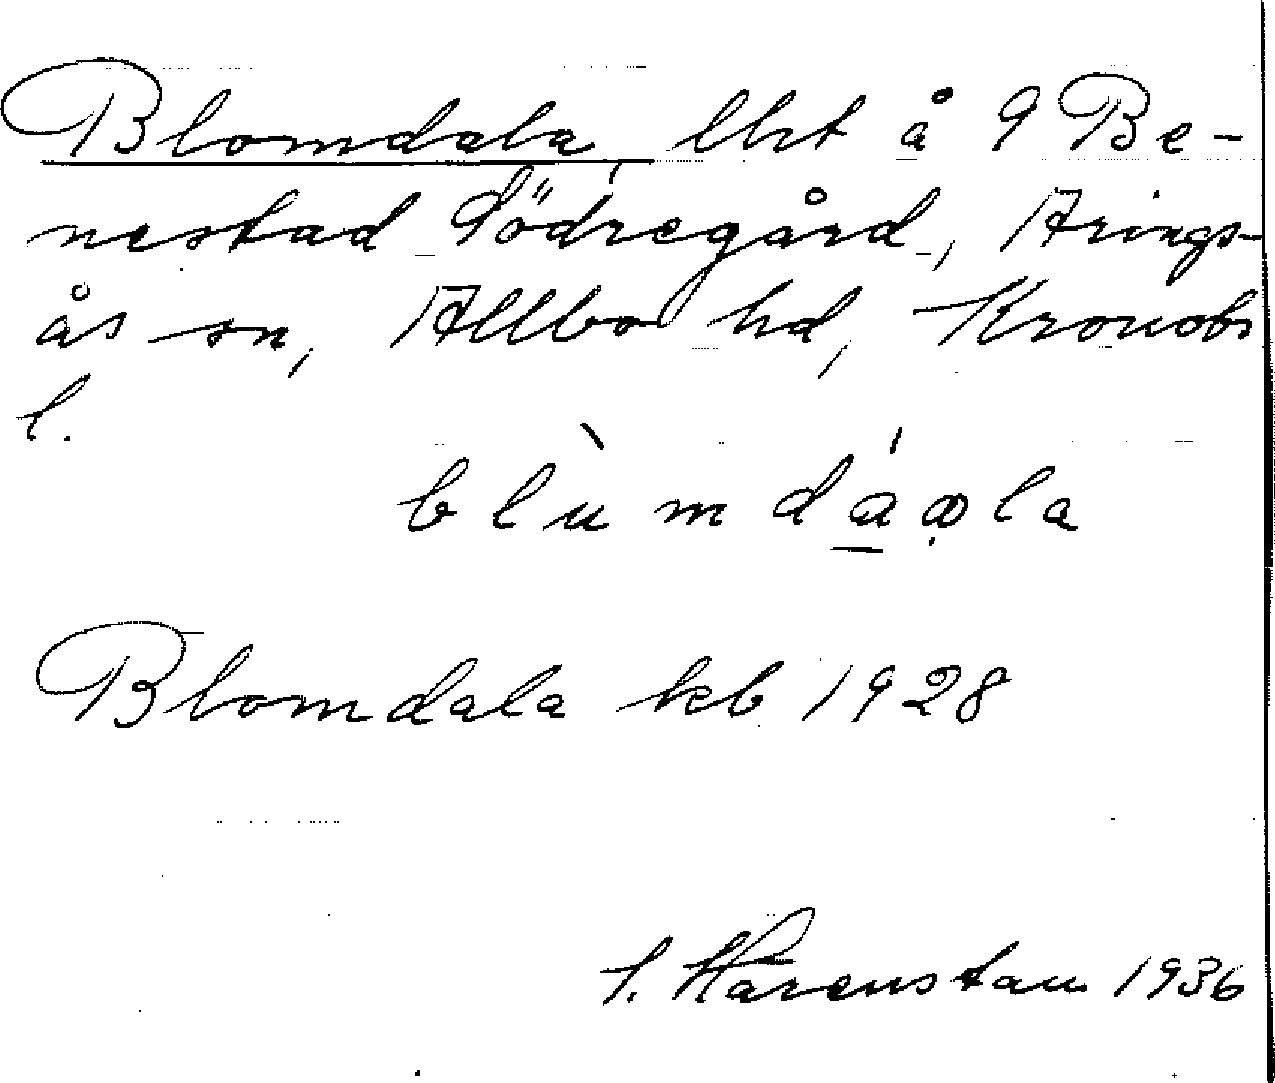 Blomdala, lht å 9 Be-
nestad Södregård, Arings-
ås sn, Allbo hd, Kronobs
l.
blùmdáꝏla
Blomdala kb 1928
1936